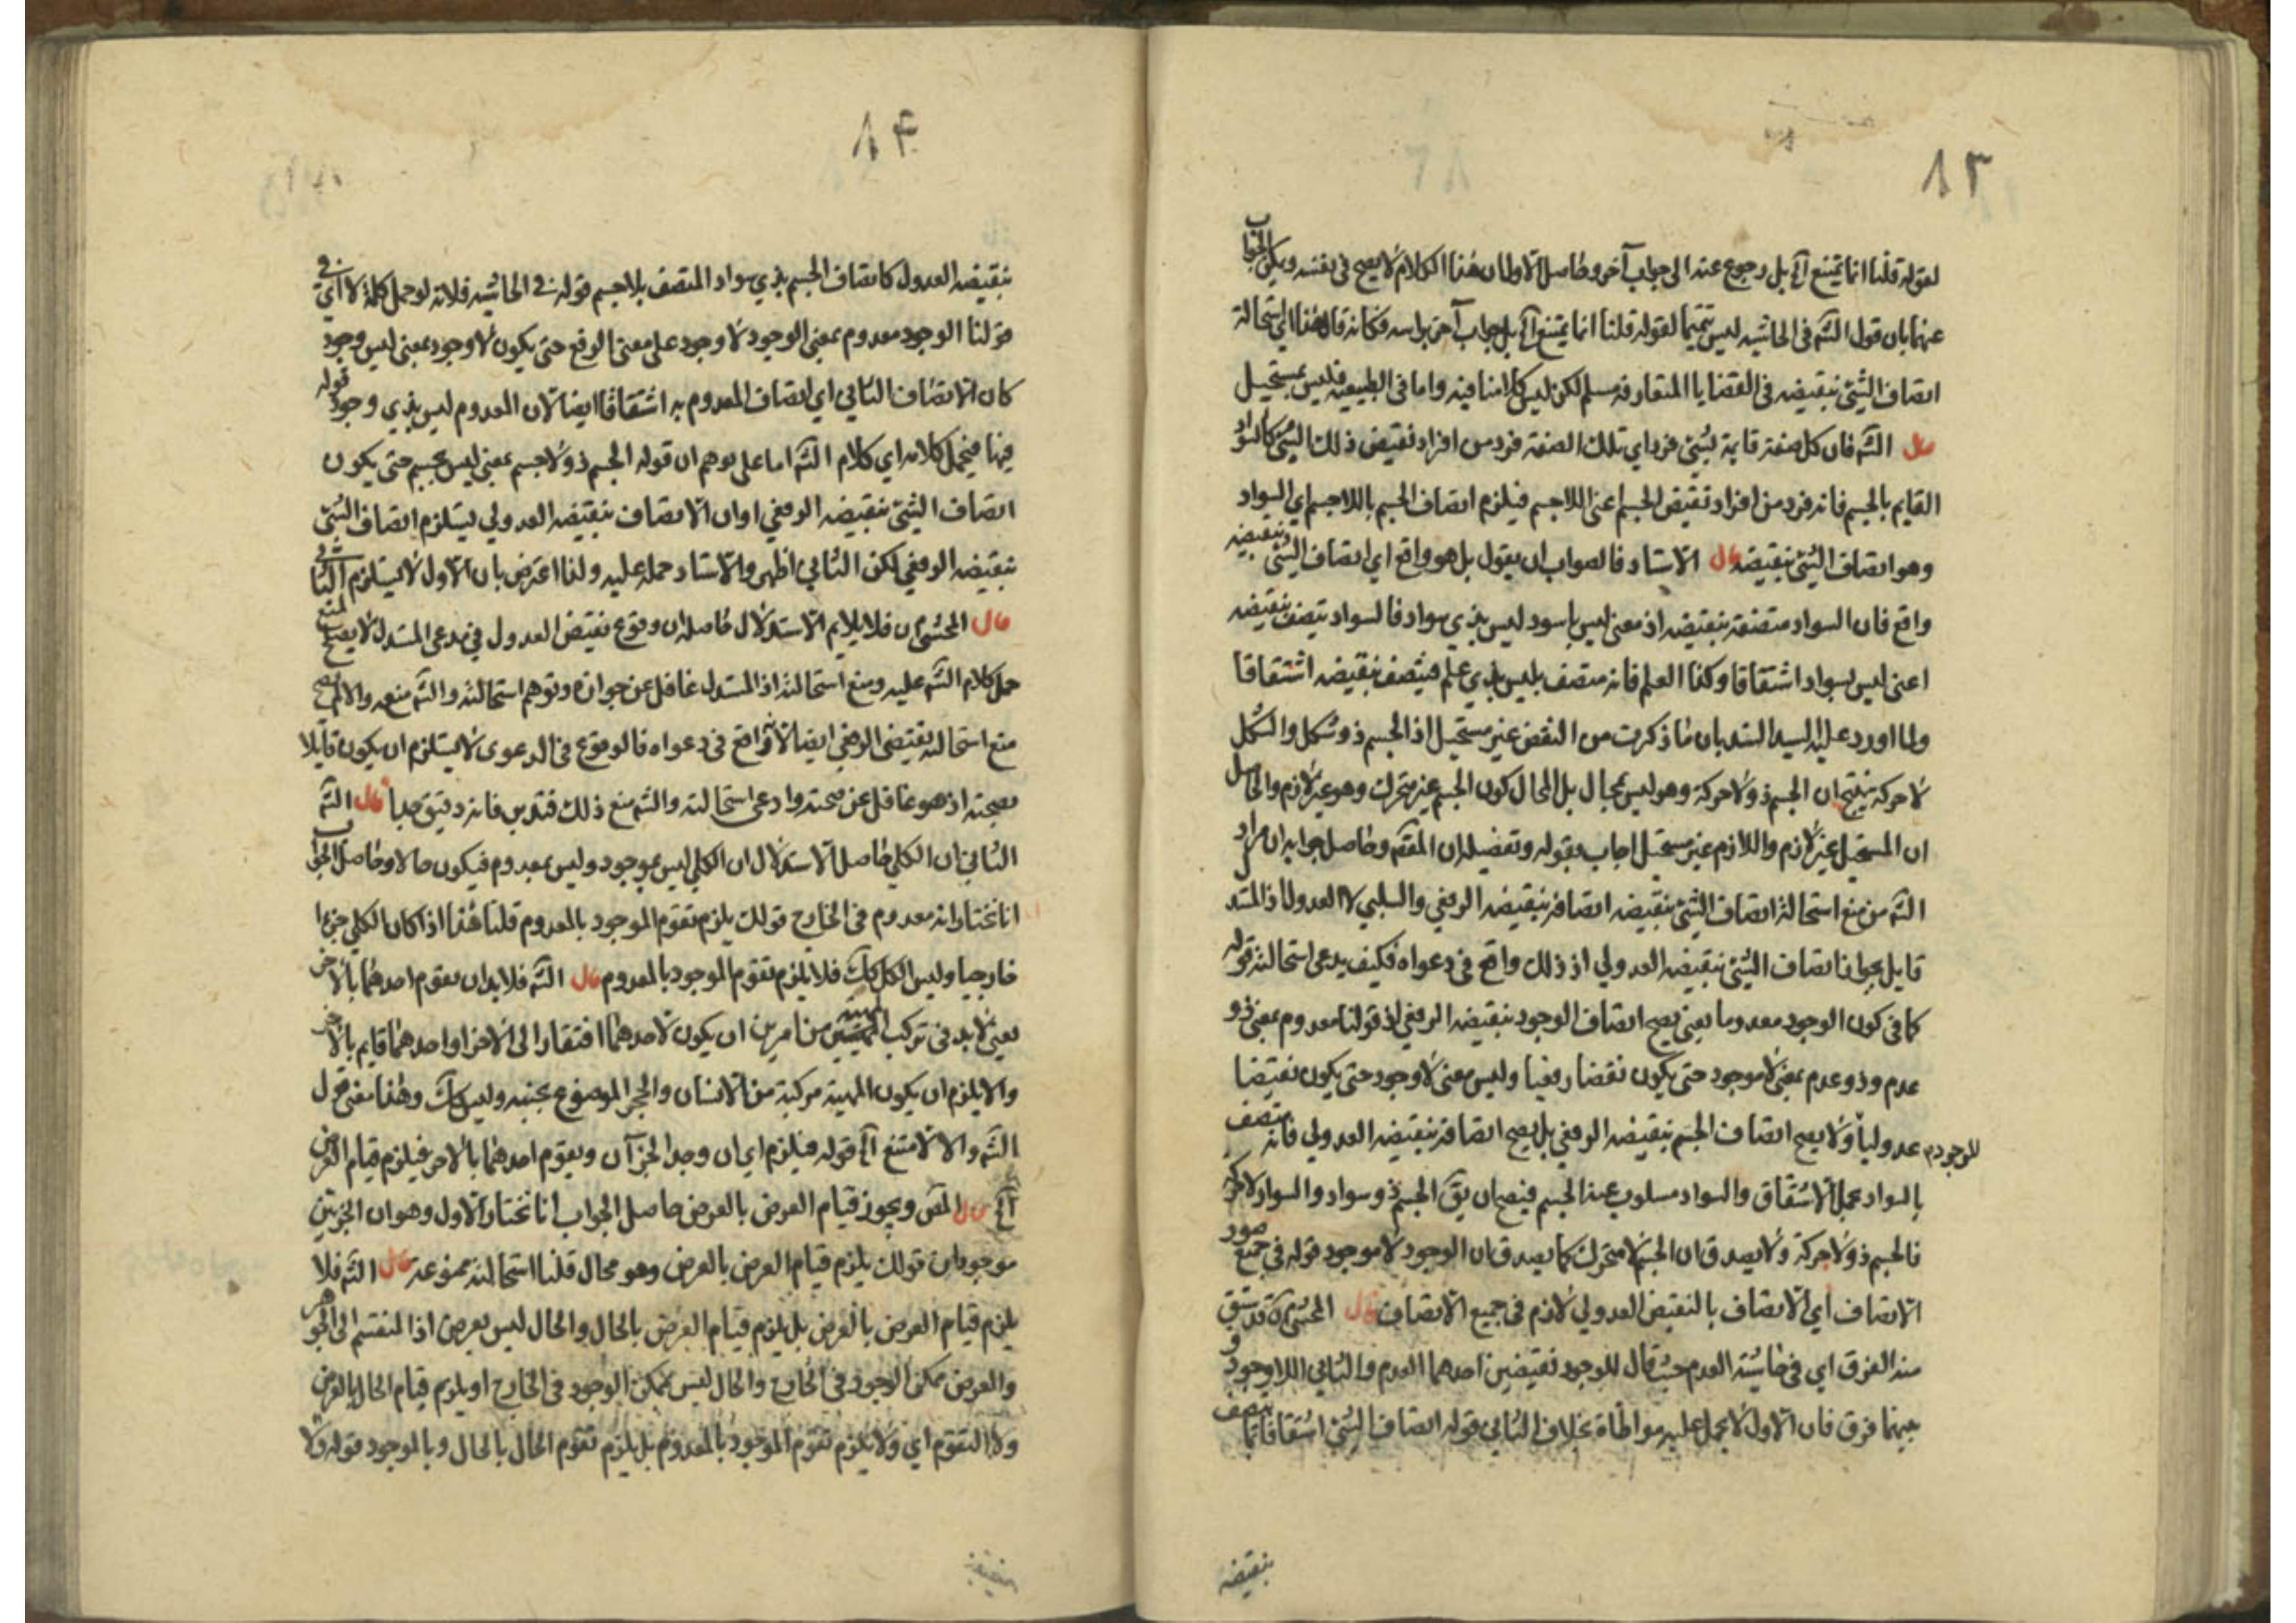 ٨٣
لقوله قلنا انما يمتنع آه بل رجوع عنه الى جواب آخر وحاصل الاول ان هذا الكلام لا يصح في نفسه ويمكن الجواب
عنهما بان قول الشه في الحاشيه ليس تتميما لقوله قلنا انما يمتنع آه بل جواب آخر براسه فكانه قال هذا اى استحالة
اتصاف الشئ بنقيضه في القضايا المتعارفه مسلم لكن ليس كلامنا فيه واما في الطبيعيه فليس بمستحيل
قال الشه فان كل صفة قايمة بشئ فرد اي تلك الصفة فرد من افراد نقيض ذلك الشئ كالسواد
القايم بالجسم فانه فرد من افراد نقيض الجسم اعنى اللاجسم فيلزم اتصاف الجسم باللاجسم اي السواد
وهو اتصاف الشئ بنقيضه قال الاستاد فالصواب ان يقول بل هو واقع اي اتصاف الشئ بنقيضه
واقع فان السواد متصفة بنقيضه اذ معنى ليس باسود ليس بذي سواد فالسواد يتصف بنقيضه
اعنى ليس بسواد اشتقاقا وكذا العلم فانه متصف بليس بذي علم فيتصف بنقيضه اشتقاقا
ولما اورد عليه السيد السند بان ما ذكرت من النقض غير مستحيل اذ الجسم ذو شكل والشكل
لا حركه ينتج ان الجسم ذو لا حركة وهو ليس بمحال بل المحال كون الجسم غير متحرك وهو غير لازم والحاصل
ان المستحيل غير لازم واللازم غير مستحيل اجاب بقوله وتفصيله ان المقصه وحاصل جوابه ان مراد
الشه من منع استحالة اتصاف الشئ بنقيضه اتصافه بنقيضه الرفعي والسلبي لا العدول اذ المستدل
قايل بجواز اتصاف الشئ بنقيضه العدولي اذ ذلك واقع في دعواه فكيف يدعى استحالته قوله
كما في كون الوجود معدوما يعني يصح اتصاف الوجود بنقيضه الرفعي اذ قولنا معدوم بمعنى ذو
عدم وذو عدم بمعنى لا موجود حتى يكون نقضا رفعيا وليس معنى لا وجود حتى يكون نقيضا
للوجودم عدوليا ولا يصح اتصاف الجسم بنقيضه الرفعي بل يصح اتصافه بنقيضه العدولي فانه متصف
بالسواد بحمل الاشتقاق والسواد مسلوب عنه الجسم فيصح ان يق الجسم ذو سواد والسواد لا حركة
فالجسم ذو لا حركة ولا يصدق ان الجسم لا متحرك كما يصدق ان الوجود لا موجود قوله في جميع صور
الاتصاف اي الاتصاف بالنقيض العدولي لازم في جميع الاتصاف قال المحشى ره قد سبق
منه الفرق اي في حاشية العدم حيث قال للوجود نقيضين احدهما العدم والثاني اللاوجود و
بينهما فرق فان الاول لا يحمل عليه مواطاة بخلاف الثاني قوله اتصاف الشئ اشتقاقا بما يتصف
بنقيضه
٨٤
بنقيضه العدول كاتصاف الجسم بذي سواد المتصف بلاجسم قوله في الحاشيه فلانه لو حمل كلمة لا اي في
قولنا الوجود معدوم بمعنى الوجود لا وجود على معنى الرفع حتى يكون لا وجود بمعنى ليس وجود
كان الاتصاف الثاني اي اتصاف المعدوم به اشتقاقا ايضا لان المعدوم ليس بذي وجود قوله
فيها فيحمل كلامه اي كلام الشه اما على توهم ان قوله الجسم ذو لاجسم بمعنى ليس بجسم حتى يكون
اتصاف الشئ بنقيضه الرفعي او ان الاتصاف بنقيضه العدولي يستلزم اتصاف الشئ
بنقيضه الرفعي لكن الثاني اظهر والاستاد حمله عليه ولذا اعترض بان الاول لا يستلزم الثاني
قال المحشى ره فلا يلايم الاستدلال حاصله ان وقوع نقيض العدول في مدعى المستدل لا يصحح المنع
حمل كلام الشه عليه ومنع استحالته اذ المستدل غافل عن جوازه وتوهم استحالته والشه منعه والا لم يصح
منع استحالة نقيض الرفعي ايضا لانه واقع في دعواه فالوقوع في الدعوى لا يستلزم ان يكون قايلا
بصحته اذ هو غافل عن صحته وادعى استحالته والشه منع ذلك فتدبر فانه دقيق جدا قال الشه
الثاني ان الكلي حاصل الاستدلال ان الكلي ليس بموجود وليس بمعدوم فيكون حالا وحاصل الجواب
انا نختار انه معدوم في الخارج قولك يلزم تقوم الموجود بالمعدوم قلنا هذا اذا كان الكلي جزءا
خارجيا وليس الكل كك فلا يلزم تقوم الموجود بالمعدوم قال الشه فلا بد ان يقوم احدهما بالاخر
يعني لا بد في تركب الحقيقيتين من امرين ان يكون لاحدهما افتقار الى الاخر او احدهما قايم بالاخر
والا يلزم ان يكون المهية مركبة من الانسان والحجر الموضوع بجنبه وليس كك وهذا معنى قول
الشه والا لامتنع آه قوله فيلزم اي ان وجد الجزآن ويقوم احدهما بالاخر فيلزم قيام العرض
آه قال المص ويجوز قيام العرض بالعرض حاصل الجواب انا نختار الاول وهو ان الجزئين
موجودان قولك يلزم قيام العرض بالعرض وهو محال قلنا استحالته ممنوعة قال الشه فلا
يلزم قيام العرض بالعرض بل يلزم قيام العرض بالحال والحال ليس بعرض اذ المنقسم الى الجوهر
والعرض ممكن الوجود في الخارج والحال ليس بممكن الوجود في الخارج او يلزم قيام الحال بالعرض
ولا التقوم اي ولا يلزم تقوم الموجود بالمعدوم بل يلزم تقوم الحال بالحال وبالموجود قوله ولا